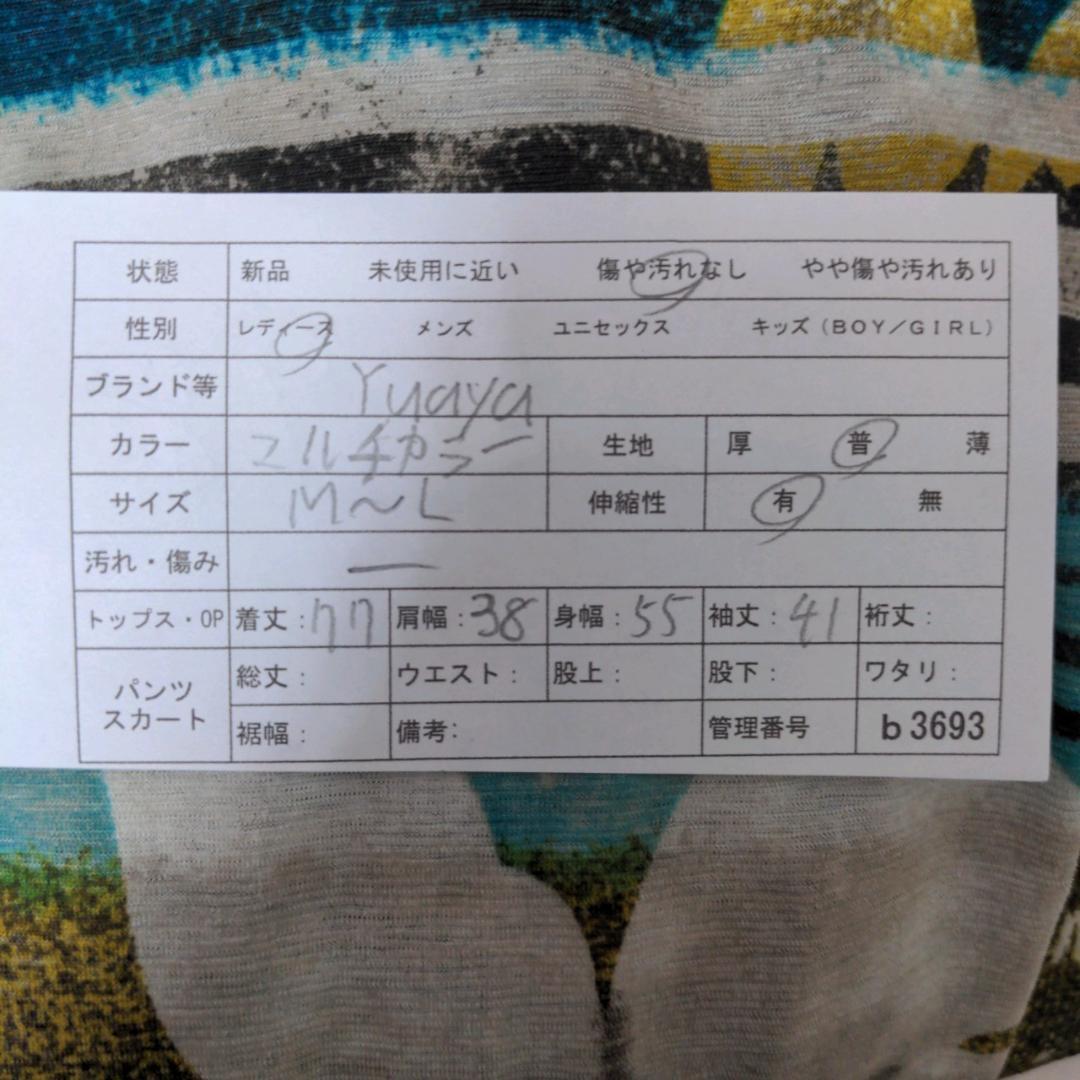 状態 新品 未使用に近い 傷や汚れなし やや傷や汚れあり
性別 レディース メンズ ユニセックス キッズ（BOY／GIRL）
ブランド等 Yuaya
カラー マルチカラー 生地 厚 普 薄
サイズ M～L 伸縮性 有 無
汚れ・傷み ー
トップス・OP 着丈：77 肩幅：38 身幅：55 袖丈：41 裄丈：
パンツ スカート 総丈： ウエスト： 股上： 股下： ワタリ：
裾幅： 備考： 管理番号 b3693